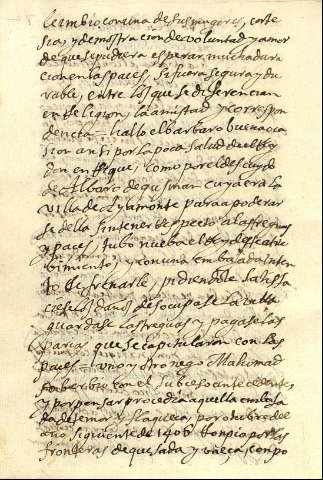 le imbio con una de sus mugeres, corte
sia, y demostracion de voluntad y amor
de que se pudiera esperar mucha dura
cion en las paces, si fuera segura y du
rable, entre los que se diferencian
en Religion, la amistad y correspon
dencia = hallo el barbaro buena oca
sion ansi por la poca salud del Rey
don enRique, como por el descuydo
de Albaro de guzman cuya era la
villa de Ayamonte para apoderar
se della sin tener respecto a las treguas
y paces, tubo nueba el Rey de este atre
bimiento, y con una embajada inten
to de frenarle, pidiendole satisfa
los daños desocupase la villa
guardase las treguas y pagase las
parias que se capitularon con las
paces = uno y otro nego Mahomad
soberbio con el subceso antecedente
y por pensar procedia aquella embaja
da de temor y flaqueça, por otubre del
año siguiente de 1406 Rompio por las
fronteras de quesada y vaeça con po